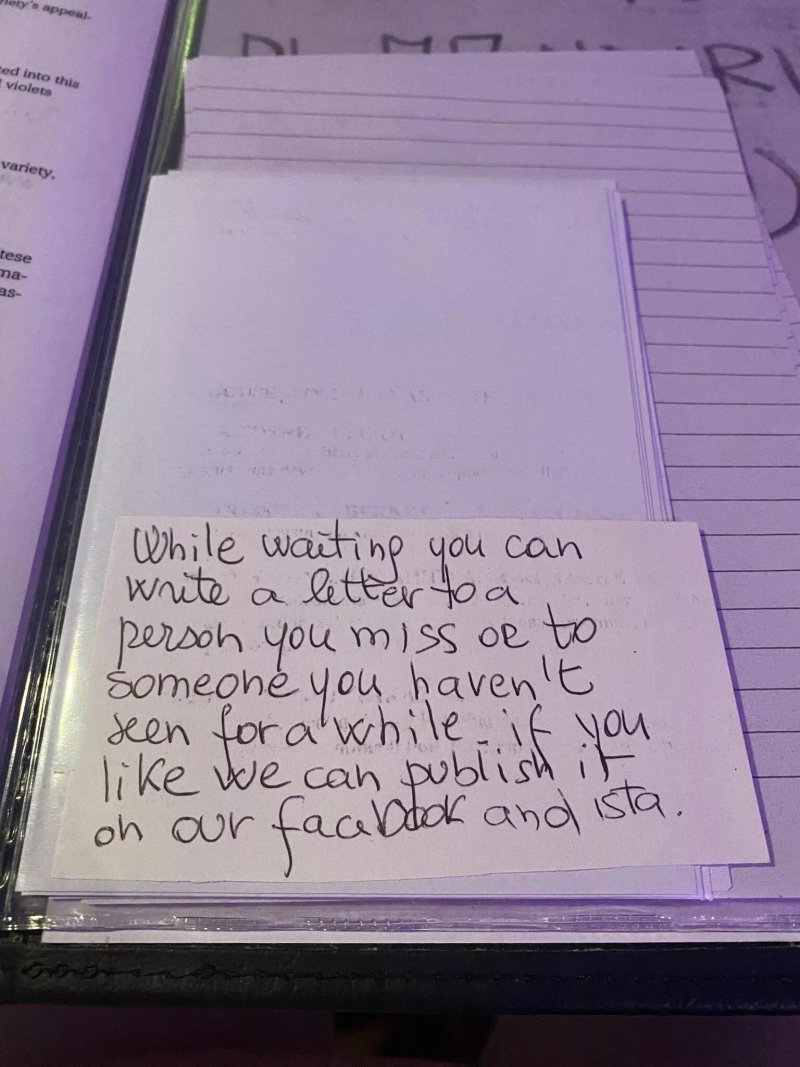 iety's appeal-
ted into this
violets
variety.
tese
ma-
as-
While waiting you can
write a letter to a
person you miss or to
someone you haven't
seen for a while. if you
like we can publish it
on our facebook and ista.